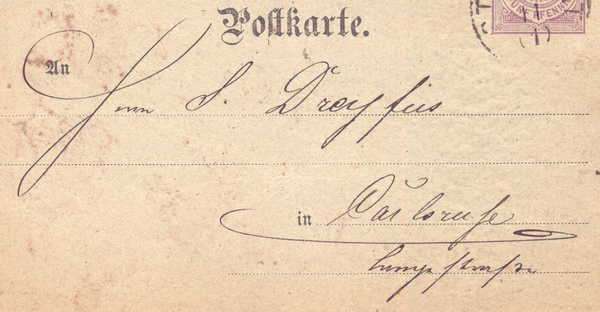 Postkarte.
An
Herrn S. Dreyfus
in Carlsruhe
Langestraße